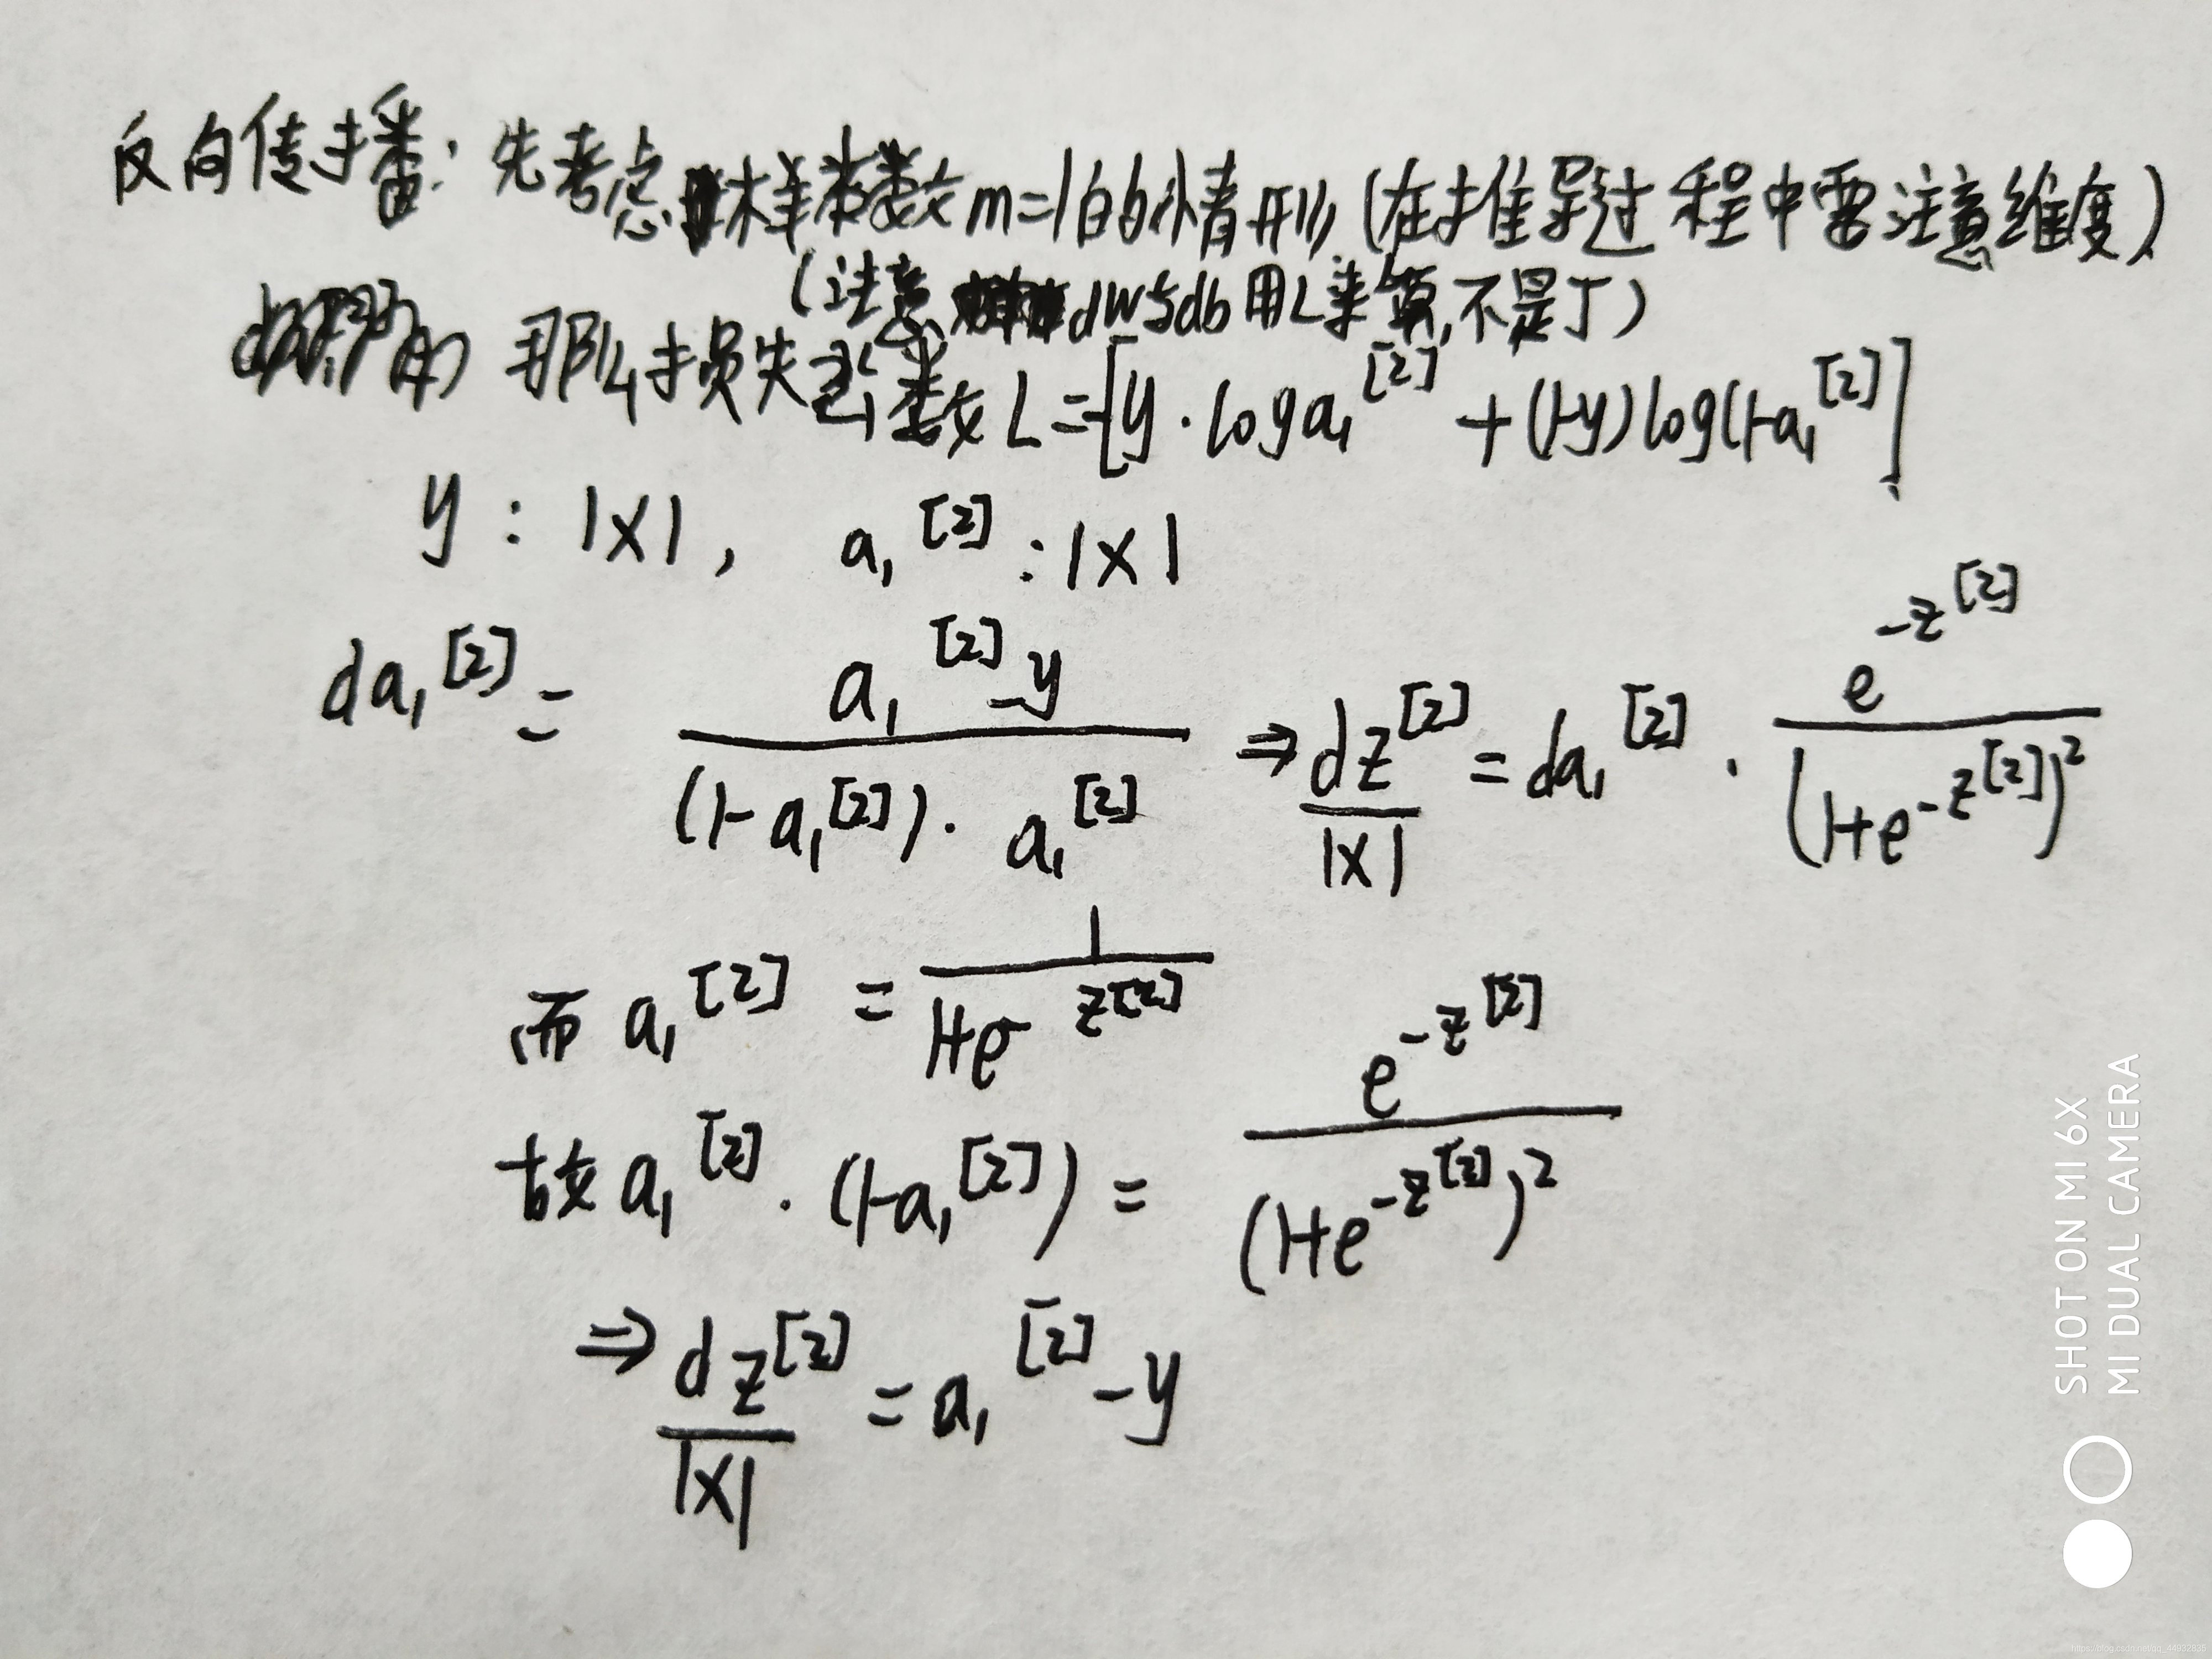 反向传播：先考虑样本数m=1的情形（在推导过程中需注意维度）
（注意dw与db用L来算，不是J）
那么损失函数 L=-[y·log a₁^[2] + (1-y)log(1-a₁^[2])]
y：1×1， a₁^[2]：1×1
da₁^[2] = (a₁^[2]-y) / ((1-a₁^[2])·a₁^[2]) ⇒ dz^[2] = da₁^[2] · e^(-z^[2]) / (1+e^(-z^[2]))²
1×1
而 a₁^[2] = 1 / (1+e^(-z^[2]))
故 a₁^[2]·(1-a₁^[2]) = e^(-z^[2]) / (1+e^(-z^[2]))²
⇒ dz^[2] = a₁^[2] - y
1×1
SHOT ON MI 6X
MI DUAL CAMERA